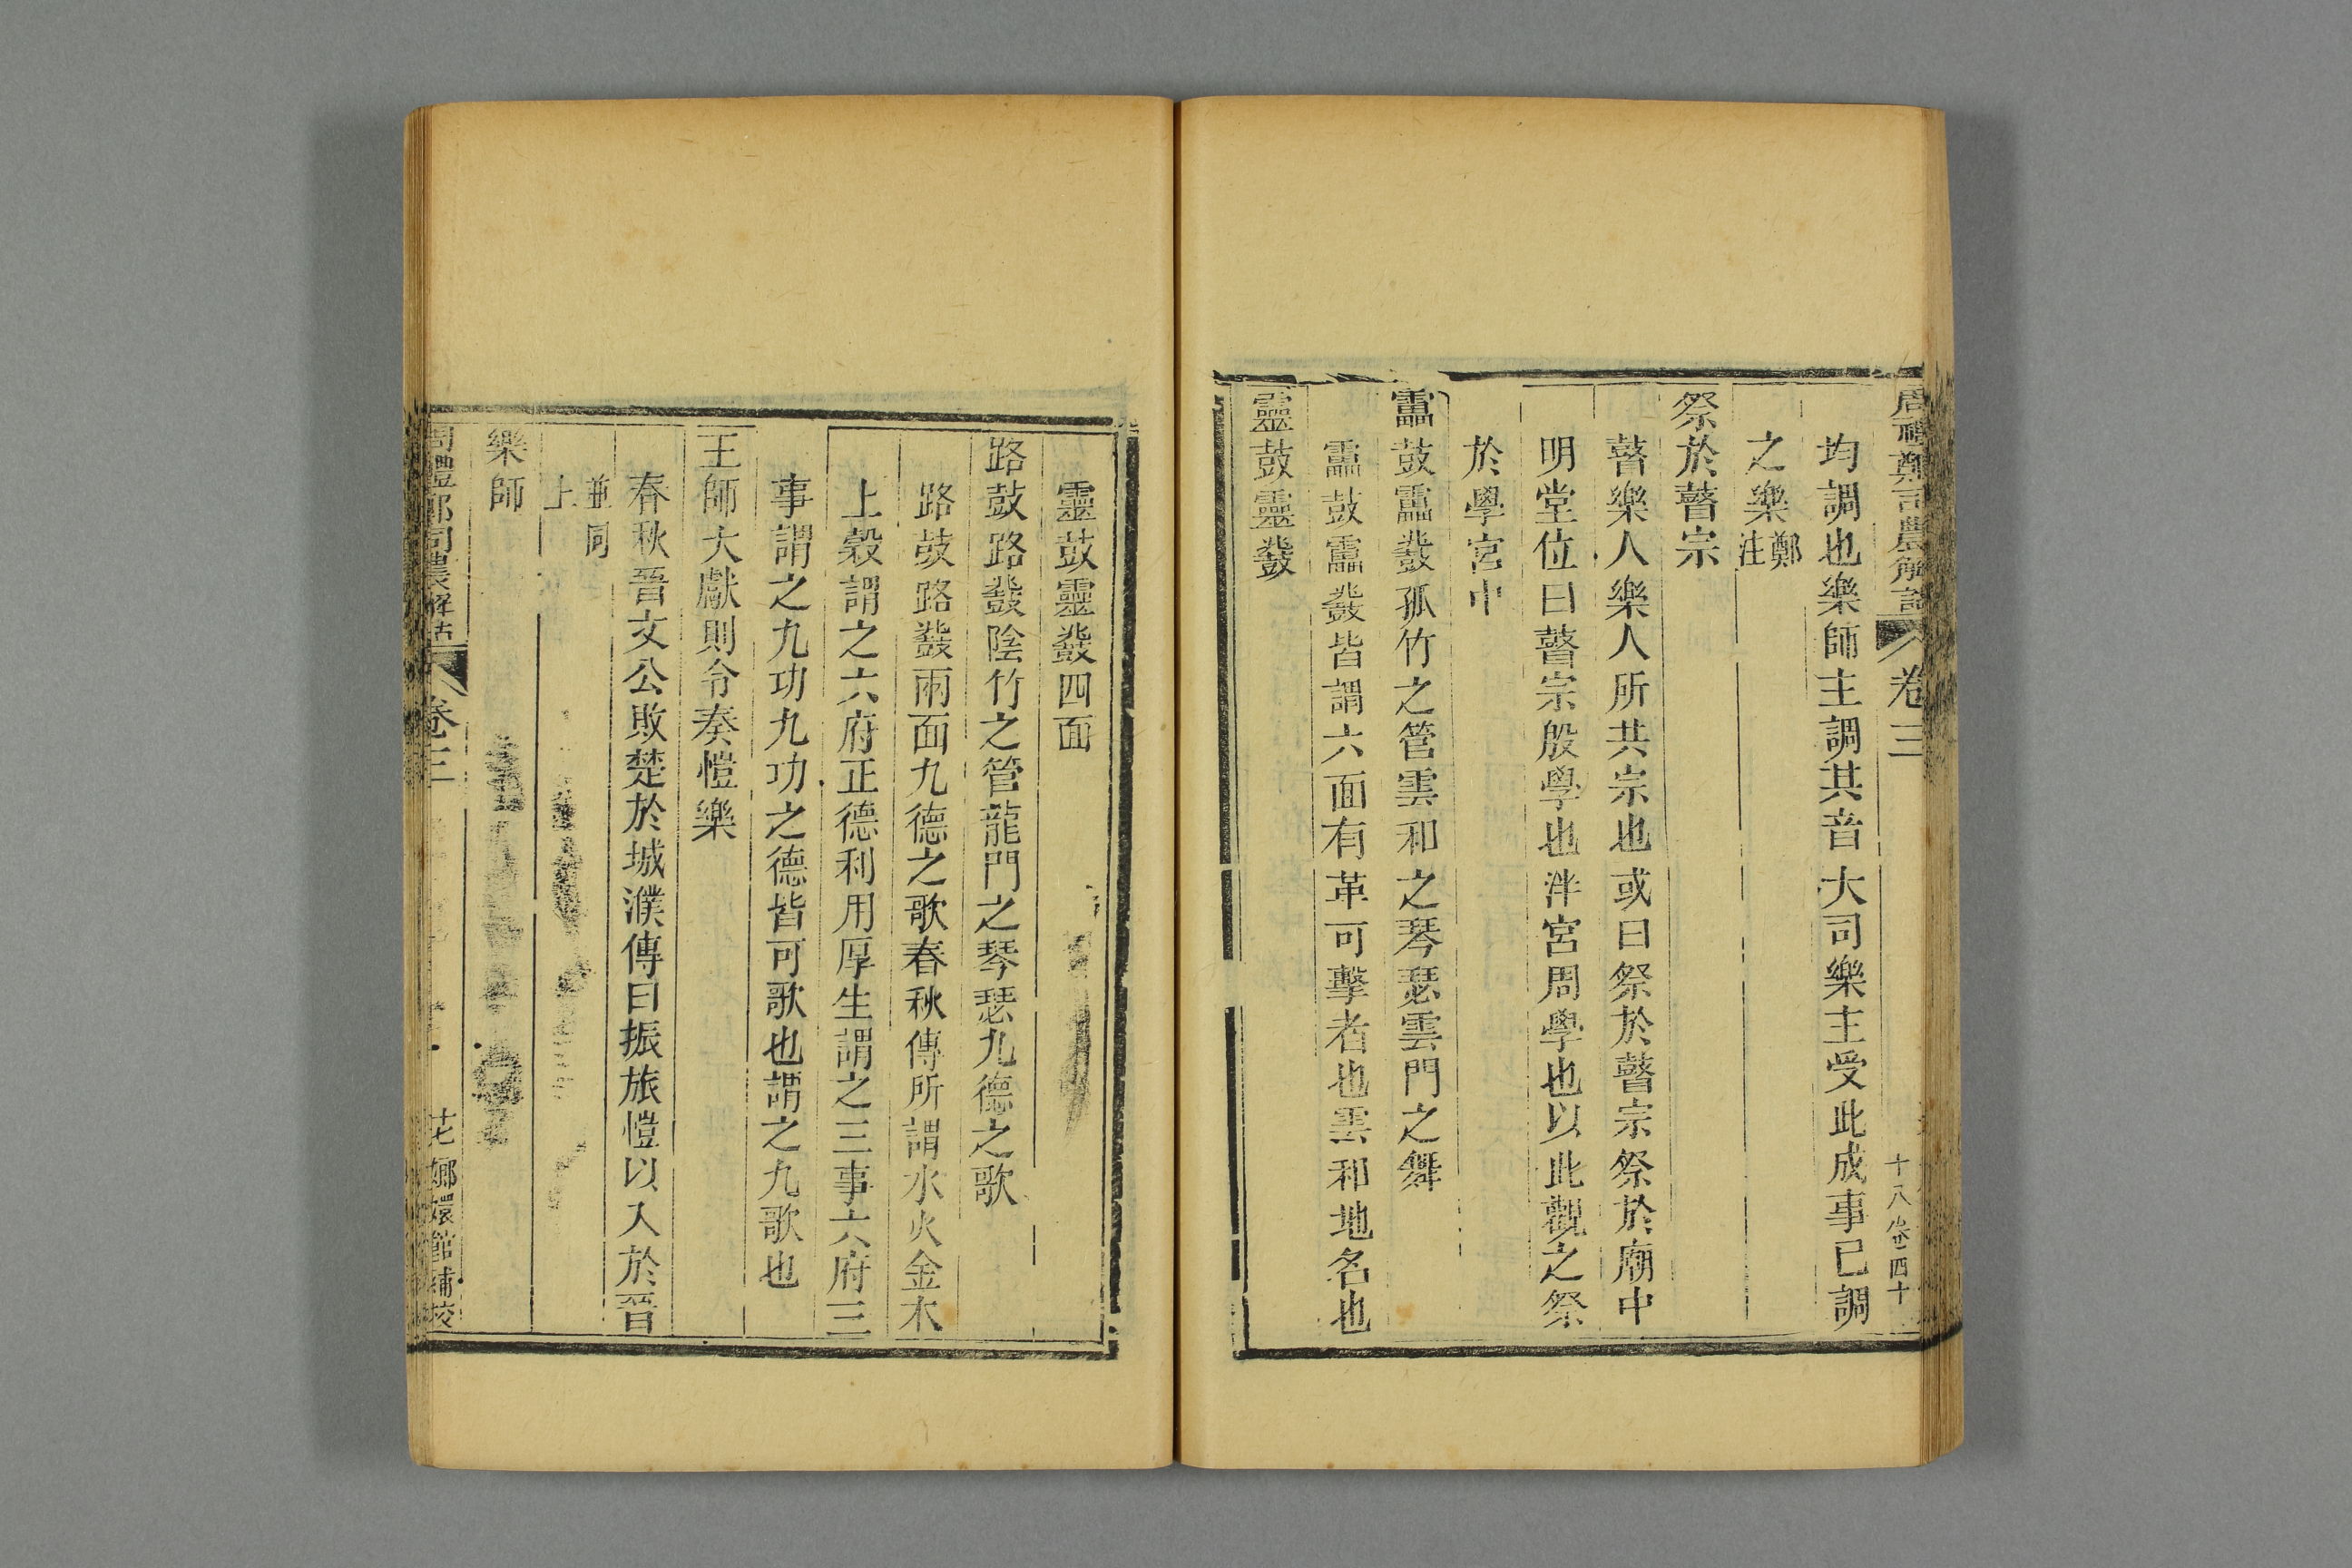 周禮鄭司農解詁 卷三 十八 卷四十
均調也樂師主調其音大司樂主受此成事已調
之樂鄭注
祭於瞽宗
瞽樂人樂人所共宗也或曰祭於瞽宗祭於廟中
明堂位曰瞽宗殷學也泮宮周學也以此觀之祭
於學宮中
靁鼓靁鼗孤竹之管雲和之琴瑟雲門之舞
靁鼓靁鼗皆謂六面有革可擊者也雲和地名也
靈鼓靈鼗
靈鼓靈鼗四面
路鼓路鼗陰竹之管龍門之琴瑟九德之歌
路鼓路鼗兩面九德之歌春秋傳所謂水火金木
土穀謂之六府正德利用厚生謂之三事六府三
事謂之九功九功之德皆可歌也謂之九歌也
王師大獻則令奏愷樂
春秋晉文公敗楚於城濮傳曰振旅愷以入於晉
並同上
樂師
周禮鄭司農解詁 卷三 十七 嫏嬛館補校